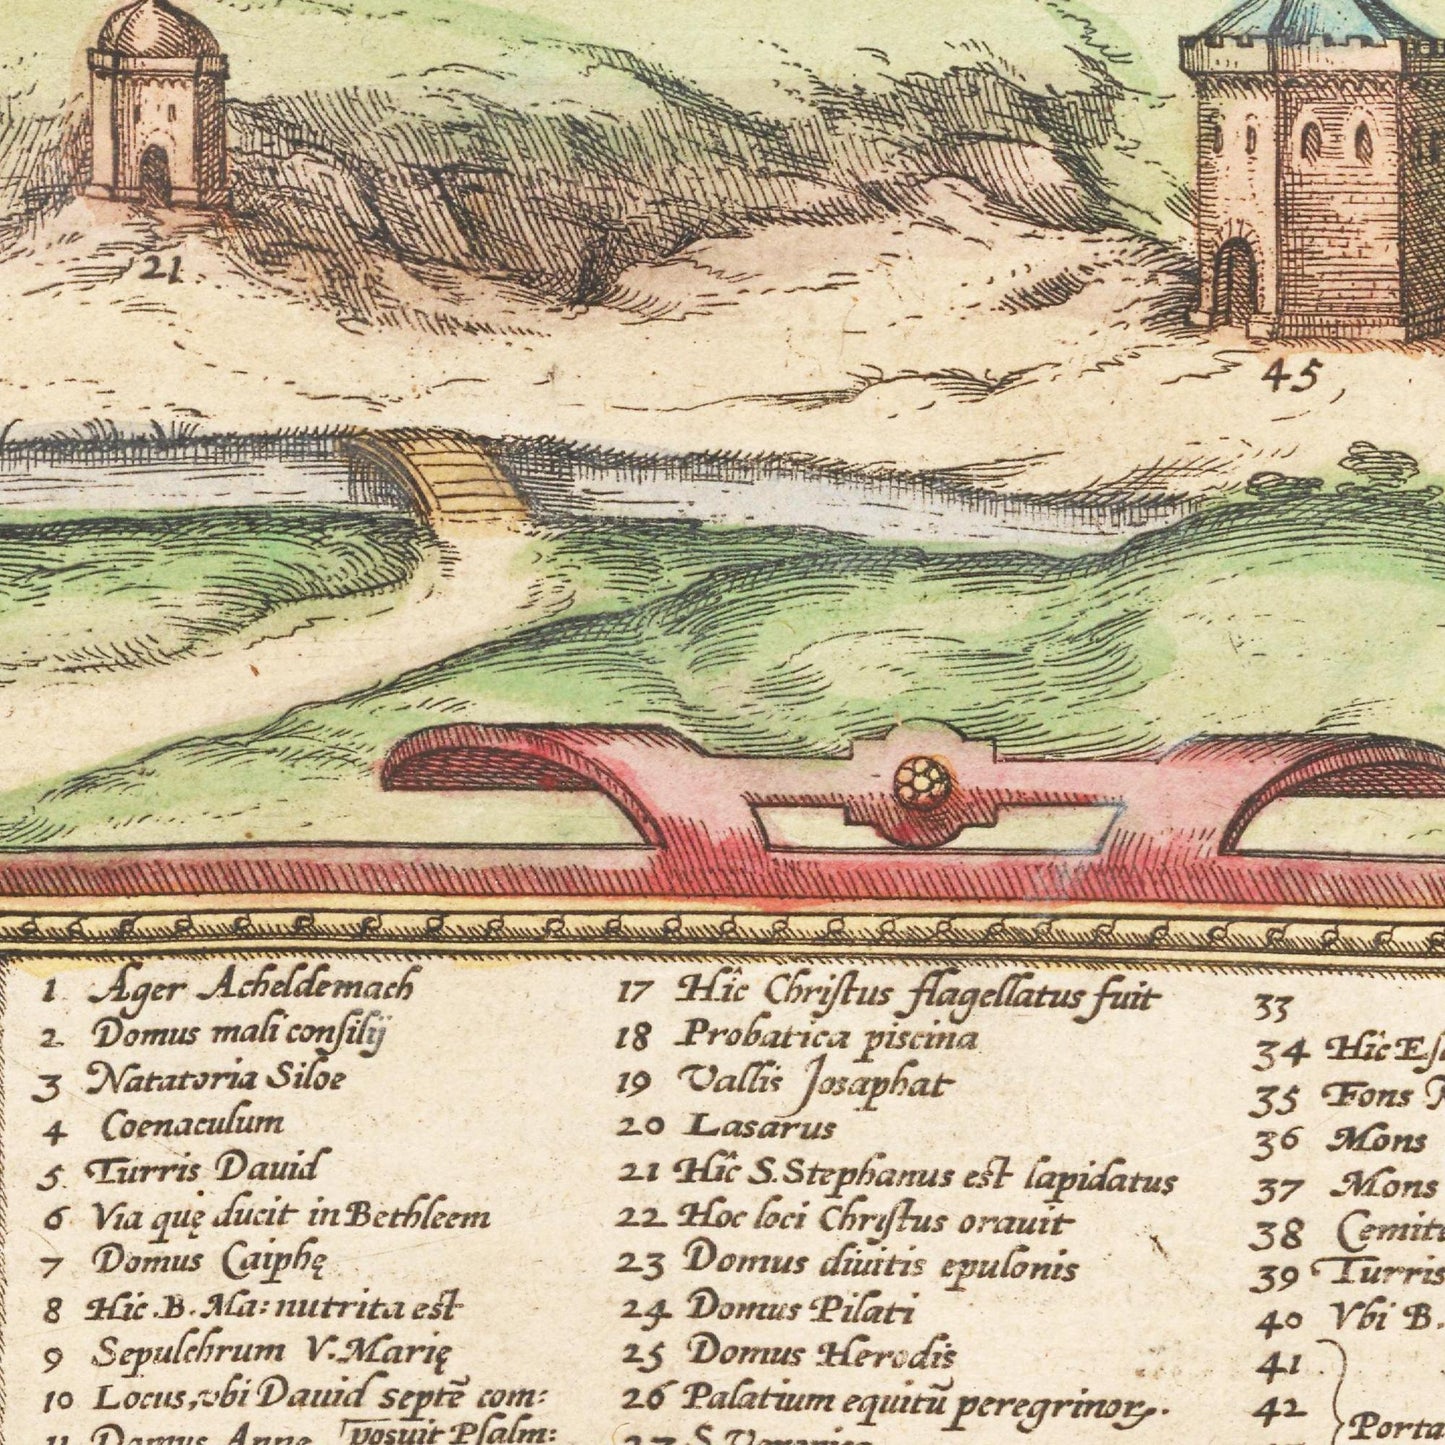 21
45
1 Ager Acheldemach
2 Domus mali consilij
3 Natatoria Siloe
4 Coenaculum
5 Turris Dauid
6 Via quę ducit in Bethleem
7 Domus Caiphę
8 Hic .B. Ma: nutrita est
9 Sepulchrum V. Marię
10 Locus, vbi Dauid septē com:
posuit Psalm:
11 Domus Anne
17 Hîc Christus flagellatus fuit
18 Probatica piscina
19 Vallis Josaphat
20 Lasarus
21 Hîc S. Stephanus est lapidatus
22 Hoc loci Christus orauit
23 Domus diuitis epulonis
24 Domus Pilati
25 Domus Herodis
26 Palatium equitū peregrinorꝝ.
27 S. Veronica
33
34 Hîc
35 Fons
36 Mons
37 Mons
38
39 Turris
40 Vbi B.
41
42
Porta